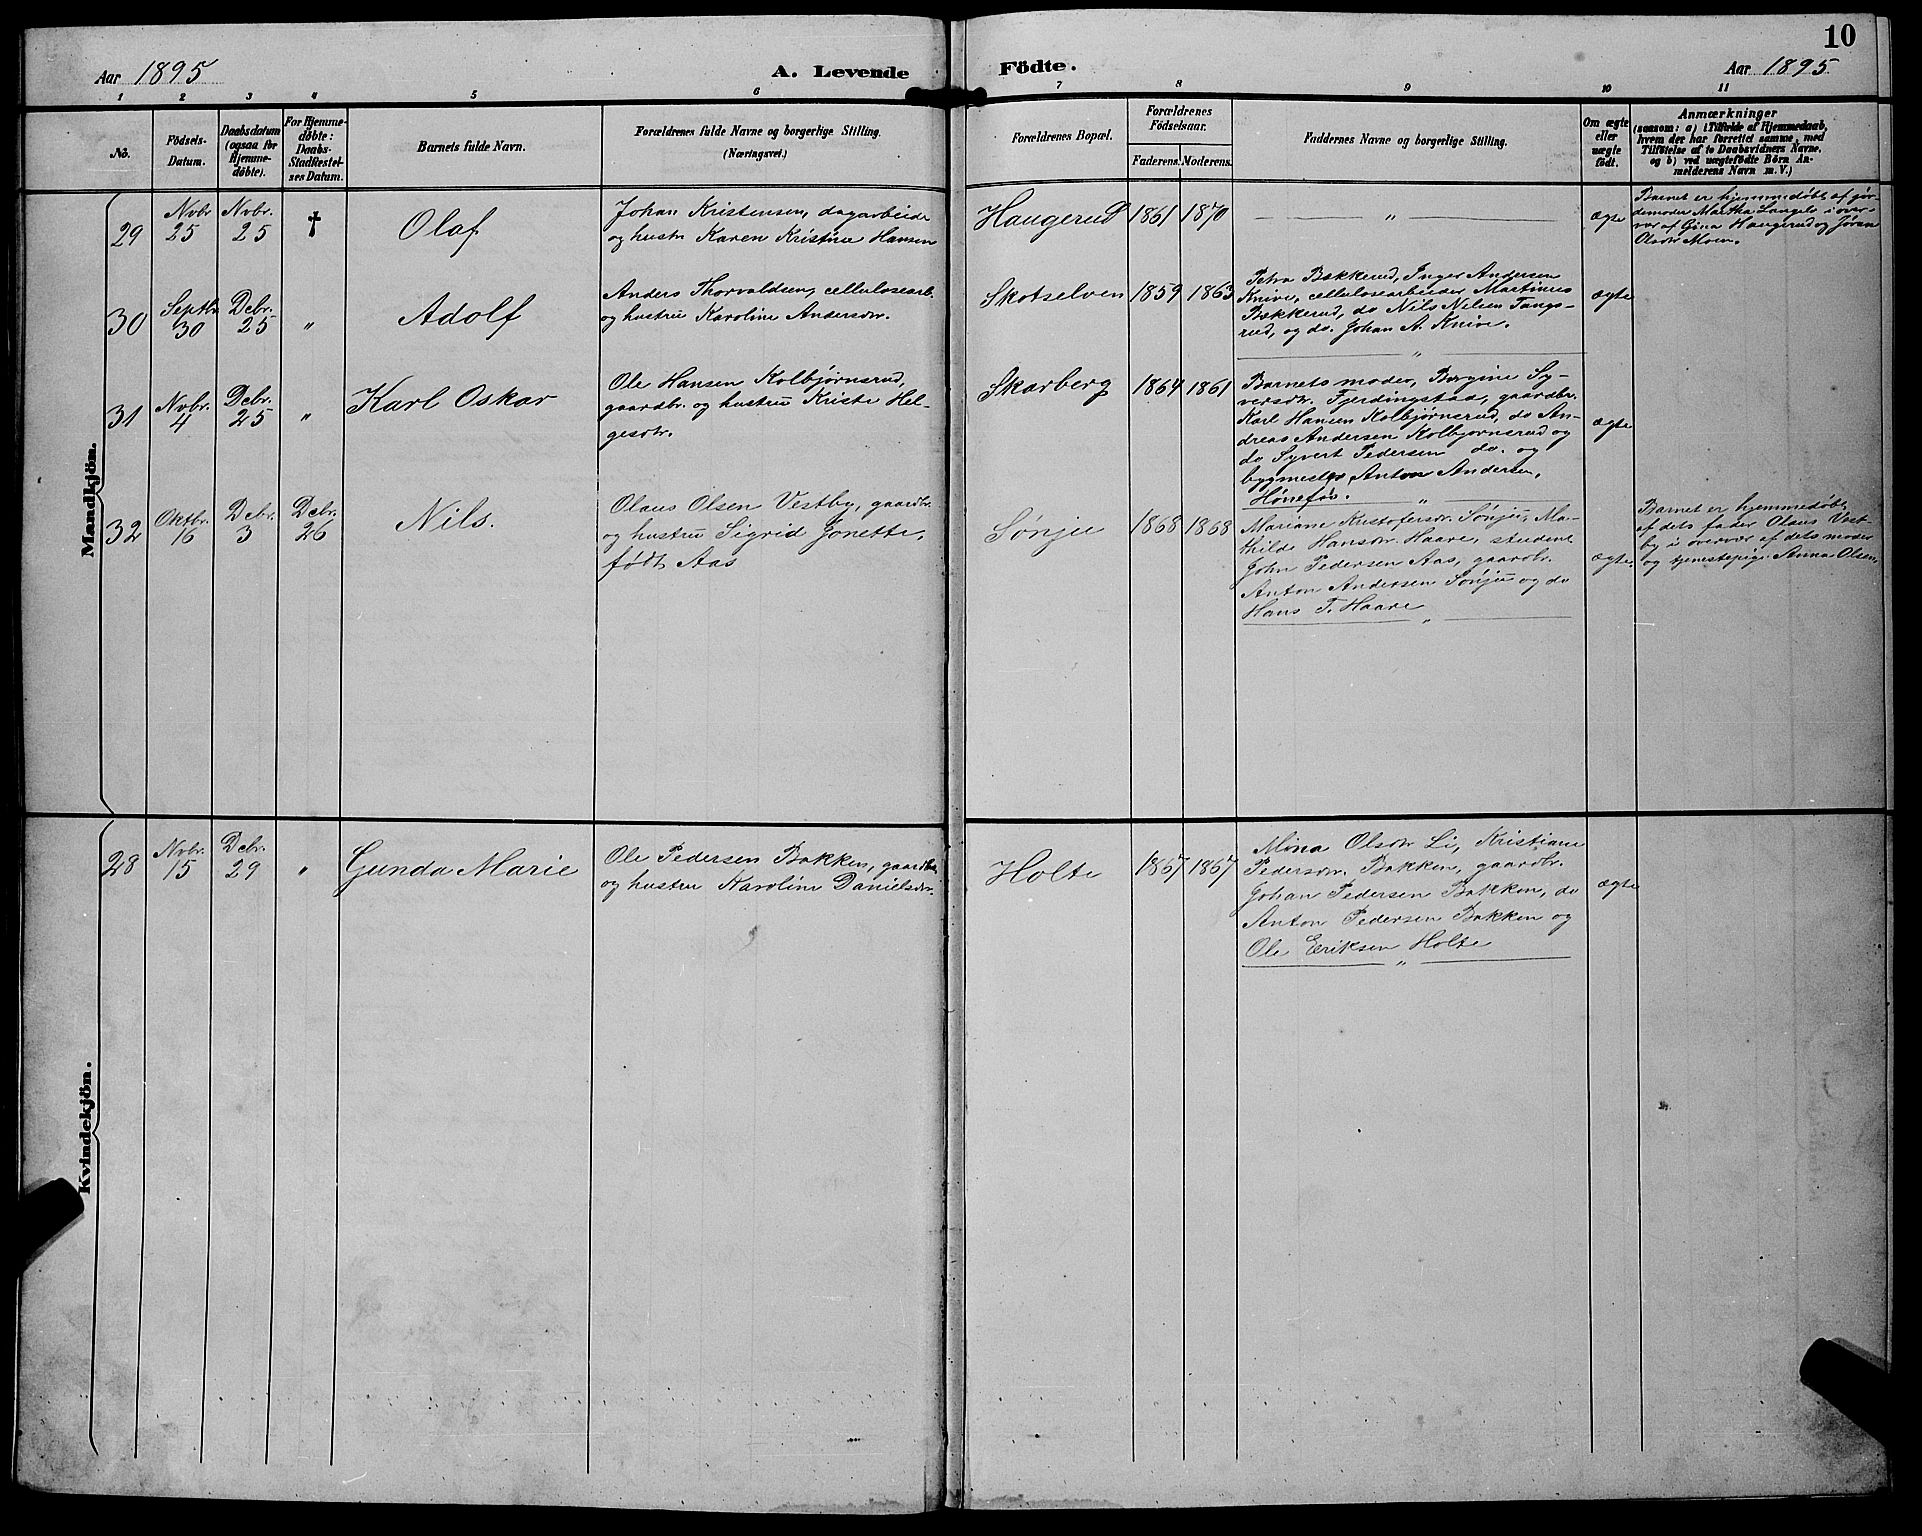 10
Aar 1895
A. Levende
Födte.
Aar 1895
1 2 3 4 5 6 7 8 9 10 11
No.
Födsels-
Datum.
Daabsdatum
(ogsaa for
Hjemme-
döbte).
For Hjemme-
döbte:
Daabs-
Stadfæstel-
ses Datum.
Barnets fulde Navn.
Forældrenes fulde Navne og borgerlige Stilling.
(Næringsvei.)
Forældrenes Bopæl.
Forældrenes
Födselsaar.
Faderens. Moderens.
Faddernes Navne og borgerlige Stilling.
Om ægte
eller
uægte
födt.
Anmærkninger
(saasom: a) i Tilfælde af Hjemmedaab,
hvem der har forrettet samme, med
Tilföielse af to Daabsvidners Navne,
og b) ved uægtefödte Börn An-
melderens Navn m. V.)
Mandkjön.
29
Nvbr
25
Nvbr.
25
†
Olaf
Johan Kristensen, dagarbeide
og hustr Karen Kristine Hansen
Haugerud
1861 1870
"
ægte
Barnet er hjemmedøbt af jor-
demoder Martha Langelo i over-
vær af Gina Haugerud og Jøran
Olsdtr Moen.
30
Septbr
30
Debr.
25
"
Adolf
Anders Thorvaldsen, cellulosearb.
og hustru Karoline Andersdtr.
Skotselven
1859 1863
Petra Bækkerud, Inger Andersen
Knive, cellulosearbeider Martinus
Bækkerud, do Nils Nilsen Tangs-
rud, og do. Johan A. Knive.
"
ægte
31
Nvbr.
4
Debr.
25
"
Karl Oskar
Ole Hansen Kolbjørnsrud,
gaardbr. og hustru Kristi Hel-
gesdtr.
Skarberg
1864 1861
Barnets moder, Borgine Sy-
versdtr. Fjerdingstad, gaardbr.
Karl Hansen Kolbjørnsrud, do An-
dreas Andersen Kolbjørnsrud og
do Syvert Pedersen do. og
bygmester Anton Andersen,
Hønefos.
"
ægte
32
Oktbr.
16
Debr.
3
Debr.
26
Nils.
Olaus Olsen Vestby, gaardbr.
og hustru Sigrid Jonette,
født Aas
Sønju
1868 1868
Mariane Kristofersdr. Sønju, Ma-
thilde Hansdtr. Haare, student
John Pedersen Aas, gaardbr.
Anton Andersen Sønju og do
Hans T. Haare
"
ægte.
Barnet er hjemmedøbt
af dets fader Olaus Vest-
by i overvær af dets moder
og tjenestepige Anna Olsen,
Kvindekjön.
28
Nvbr.
15
Debr.
29
"
Gunda Marie
Ole Pedersen Bakken, gaardbr
og hustru Karoline Danielsdtr.
Holte
1867 1867
Mina Olsdtr Li, Kristiane
Pedersdtr. Bakken, gaardbr.
Johan Pedersen Bakken, do
Anton Pedersen Bakken og
Ole Eriksen Holte
"
ægte